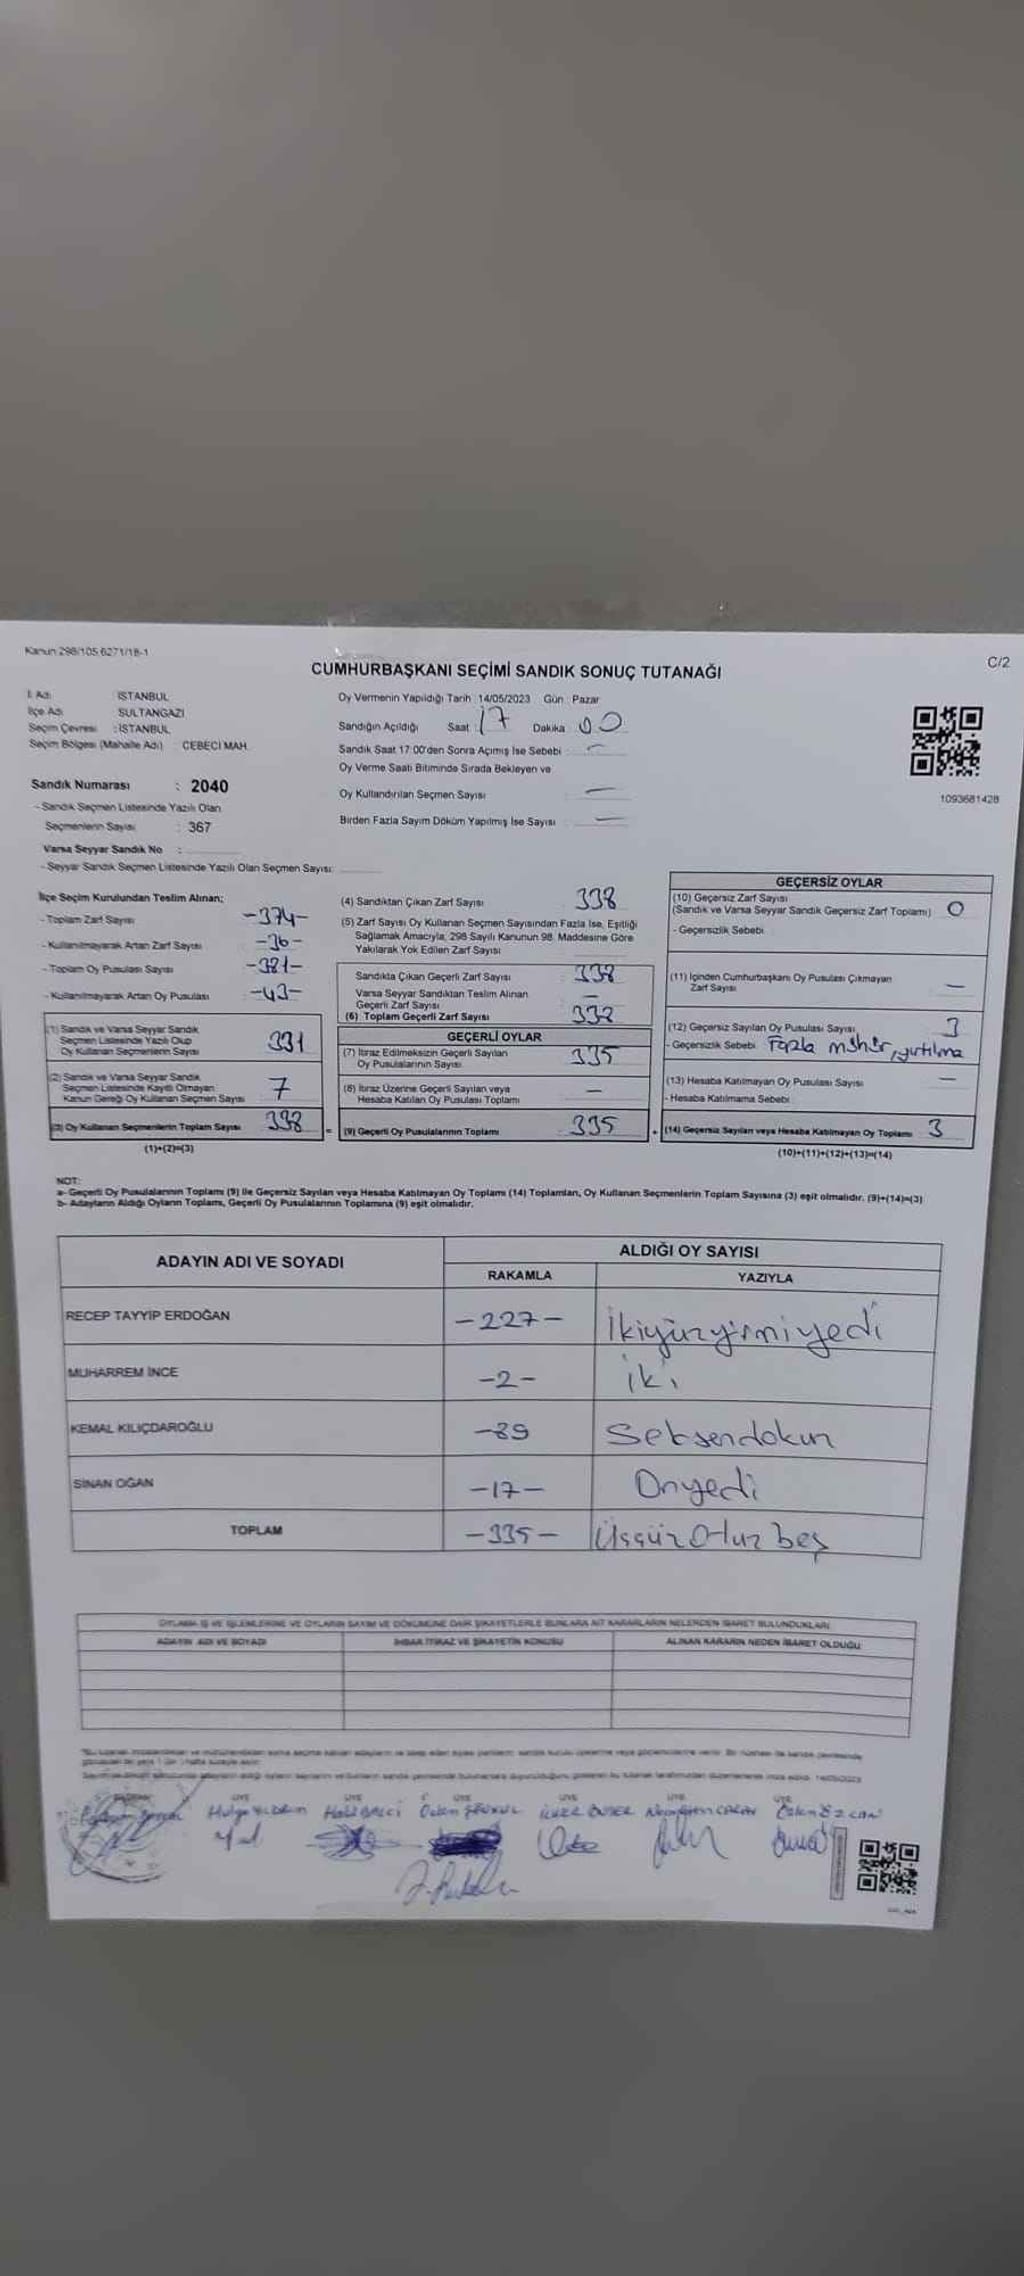 Kanun 298/105.6271/18-1
C/2
CUMHURBAŞKANI SEÇİMİ SANDIK SONUÇ TUTANAĞI
İl Adı : İSTANBUL
İlçe Adı : SULTANGAZİ
Seçim Çevresi : İSTANBUL
Seçim Bölgesi (Mahalle Adı) : CEBECİ MAH.
Sandık Numarası : 2040
- Sandık Seçmen Listesinde Yazılı Olan
Seçmenlerin Sayısı : 367
Varsa Seyyar Sandık No :
- Seyyar Sandık Seçmen Listesinde Yazılı Olan Seçmen Sayısı:
Oy Vermenin Yapıldığı Tarih 14/05/2023 Gün Pazar
Sandığın Açıldığı Saat 17 Dakika 00
Sandık Saat 17:00'den Sonra Açımış İse Sebebi -
Oy Verme Saati Bitiminde Sırada Bekleyen ve
Oy Kullandırılan Seçmen Sayısı -
Birden Fazla Sayım Döküm Yapılmış İse Sayısı -
1093681428
İlçe Seçim Kurulundan Teslim Alınan;
- Toplam Zarf Sayısı -374-
- Kullanılmayarak Artan Zarf Sayısı -36-
- Toplam Oy Pusulası Sayısı -381-
- Kullanılmayarak Artan Oy Pusulası -43-
(1) Sandık ve Varsa Seyyar Sandık
Seçmen Listesinde Yazılı Olup
Oy Kullanan Seçmenlerin Sayısı 331
(2) Sandık ve Varsa Seyyar Sandık
Seçmen Listesinde Kayıtlı Olmayan
Kanun Gereği Oy Kullanan Seçmen Sayısı 7
(3) Oy Kullanan Seçmenlerin Toplam Sayısı 338
(1)+(2)=(3)
(4) Sandıktan Çıkan Zarf Sayısı 338
(5) Zarf Sayısı Oy Kullanan Seçmen Sayısından Fazla İse, Eşitliği
Sağlamak Amacıyla, 298 Sayılı Kanunun 98. Maddesine Göre
Yakılarak Yok Edilen Zarf Sayısı
Sandıkta Çıkan Geçerli Zarf Sayısı 338
Varsa Seyyar Sandıktan Teslim Alınan
Geçerli Zarf Sayısı -
(6) Toplam Geçerli Zarf Sayısı 338
GEÇERLİ OYLAR
(7) İtiraz Edilmeksizin Geçerli Sayılan
Oy Pusulalarının Sayısı 335
(8) İtiraz Üzerine Geçerli Sayılan veya
Hesaba Katılan Oy Pusulası Toplamı -
= (9) Geçerli Oy Pusulalarının Toplamı 335
GEÇERSİZ OYLAR
(10) Geçersiz Zarf Sayısı
(Sandık ve Varsa Seyyar Sandık Geçersiz Zarf Toplamı) 0
- Geçersizlik Sebebi
(11) İçinden Cumhurbaşkanı Oy Pusulası Çıkmayan
Zarf Sayısı -
(12) Geçersiz Sayılan Oy Pusulası Sayısı 3
- Geçersizlik Sebebi Fazla mühür, yırtılma
(13) Hesaba Katılmayan Oy Pusulası Sayısı -
- Hesaba Katılmama Sebebi
+ (14) Geçersiz Sayılan veya Hesaba Katılmayan Oy Toplamı 3
(10)+(11)+(12)+(13)=(14)
NOT:
a- Geçerli Oy Pusulalarının Toplamı (9) ile Geçersiz Sayılan veya Hesaba Katılmayan Oy Toplamı (14) Toplamları, Oy Kullanan Seçmenlerin Toplam Sayısına (3) eşit olmalıdır. (9)+(14)=(3)
b- Adayların Aldığı Oyların Toplamı, Geçerli Oy Pusulalarının Toplamına (9) eşit olmalıdır.
ADAYIN ADI VE SOYADI
ALDIĞI OY SAYISI
RAKAMLA YAZIYLA
RECEP TAYYİP ERDOĞAN -227- İkiyüzyirmiyedi
MUHARREM İNCE -2- iki
KEMAL KILIÇDAROĞLU -89 Seksendokuz
SİNAN OĞAN -17- Onyedi
TOPLAM -335- Üçyüz Otuz beş
OYLAMA İŞ VE İŞLEMLERİNE VE OYLARIN SAYIM VE DÖKÜMÜNE DAİR ŞİKAYETLERLE BUNLARA AİT KARARLARIN NELERDEN İBARET BULUNDUKLARI
ADAYIN ADI VE SOYADI İHBAR İTİRAZ VE ŞİKAYETİN KONUSU ALINAN KARARIN NEDEN İBARET OLDUĞU
BAŞKAN ÜYE ÜYE ÜYE ÜYE ÜYE ÜYE
Hulya Halil İLKER Özlem ÖZCAN